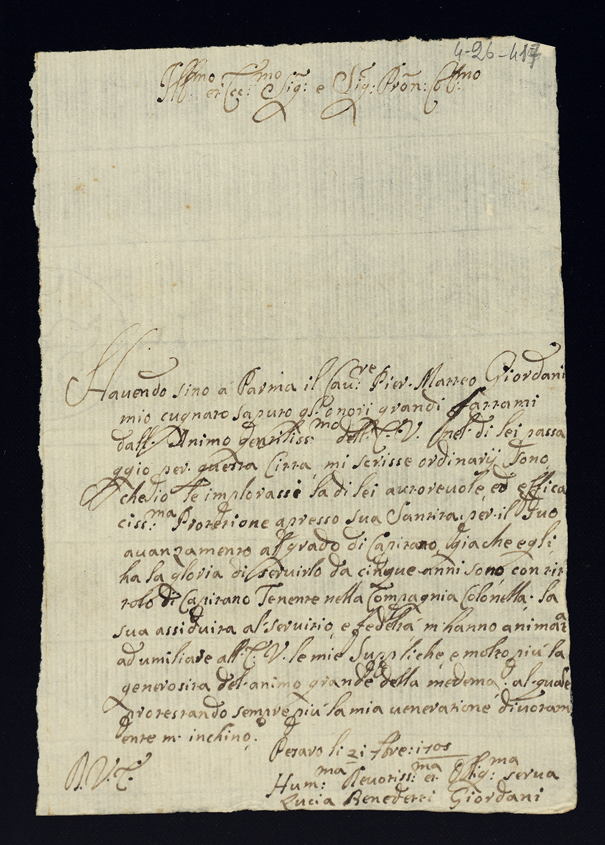 4-26-417
Ill:mo et Ecc:mo Sig: e Sig: Pròn: Col:mo
Hauendo sino à Parma il Cau:re Pier. Matteo Giordani
mio cugnato saputo gl'Onorij grandi fattami
dall'Animo gentiliss:mo dell'E. V. nel di lei passa
ggio per questa Città, mi scrisse ordinarij sono
che io le implorassi la di lei autoreuole, ed effica
ciss:ma Protetione apresso sua Santità, per il suo
auanzamento al grado di Capitano, già che egli
hà la gloria di seruirlo da cinque anni sono con tit
tolo di Capitano Tenente nella Compagnia Colonella. la
sua assiduità al seruitio, e fedeltà m'hanno animata
ad umiliare all'E. V. le mie Suppliche, e molto più la
generosità del animo grande della medema, al quale
protestando sempre più la mia ueneratione diuotam
ente m'inchino.
Pesaro li: 21 7bre: 1705
D. V. E.
Hum:ma Deuotiss:ma et Oblig:ma serua
Lucia Benedetti Giordani